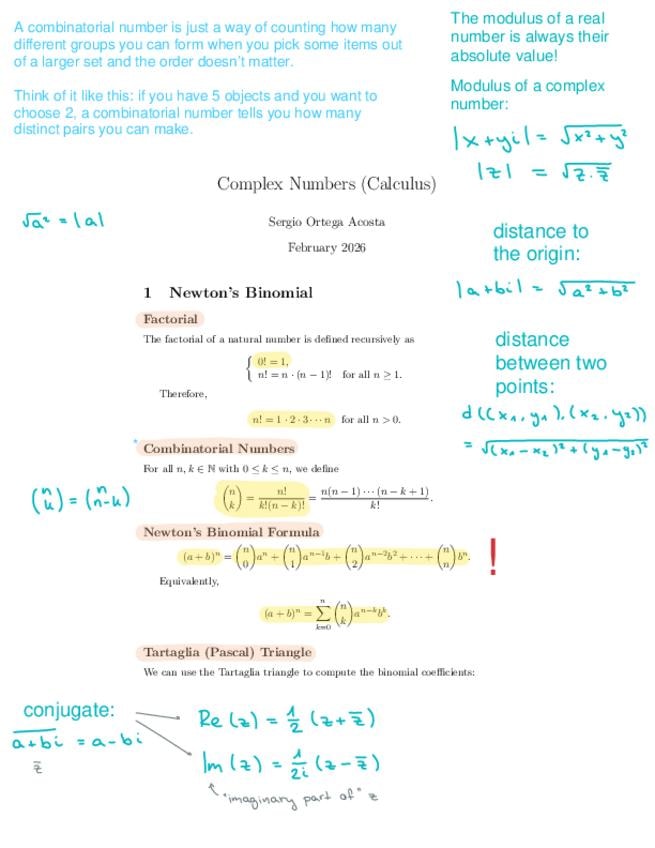 A combinatorial number is just a way of counting how many
different groups you can form when you pick some items out
of a larger set and the order doesn't matter.
Think of it like this: if you have 5 objects and you want to
choose 2, a combinatorial number tells you how many
distinct pairs you can make.
The modulus of a real
number is always their
absolute value!
Modulus of a complex
number:
|x+yi| = √(x²+y²)
|z| = √(z·z̅)
Complex Numbers (Calculus)
Sergio Ortega Acosta
February 2026
√a² = |a|
distance to
the origin:
|a+bi| = √(a²+b²)
distance
between two
points:
d((x₁,y₁),(x₂,y₂))
= √((x₁-x₂)²+(y₁-y₂)²)
1 Newton's Binomial
Factorial
The factorial of a natural number is defined recursively as
{ 0! = 1,
n! = n · (n − 1)! for all n ≥ 1.
Therefore,
n! = 1 · 2 · 3 ··· n for all n > 0.
*
Combinatorial Numbers
For all n, k ∈ ℕ with 0 ≤ k ≤ n, we define
(n k) = n!/(k!(n − k)!) = n(n − 1) ··· (n − k + 1)/k!.
(n k) = (n n-k)
Newton's Binomial Formula
(a + b)ⁿ = (n 0)aⁿ + (n 1)aⁿ⁻¹b + (n 2)aⁿ⁻²b² + ··· + (n n)bⁿ.
!
Equivalently,
(a + b)ⁿ = ∑ₖ₌₀ⁿ (n k)aⁿ⁻ᵏbᵏ.
Tartaglia (Pascal) Triangle
We can use the Tartaglia triangle to compute the binomial coefficients:
conjugate:
a+bi̅ = a-bi
z̅
Re(z) = 1/2 (z+z̅)
Im(z) = 1/2i (z-z̅)
"imaginary part of" z